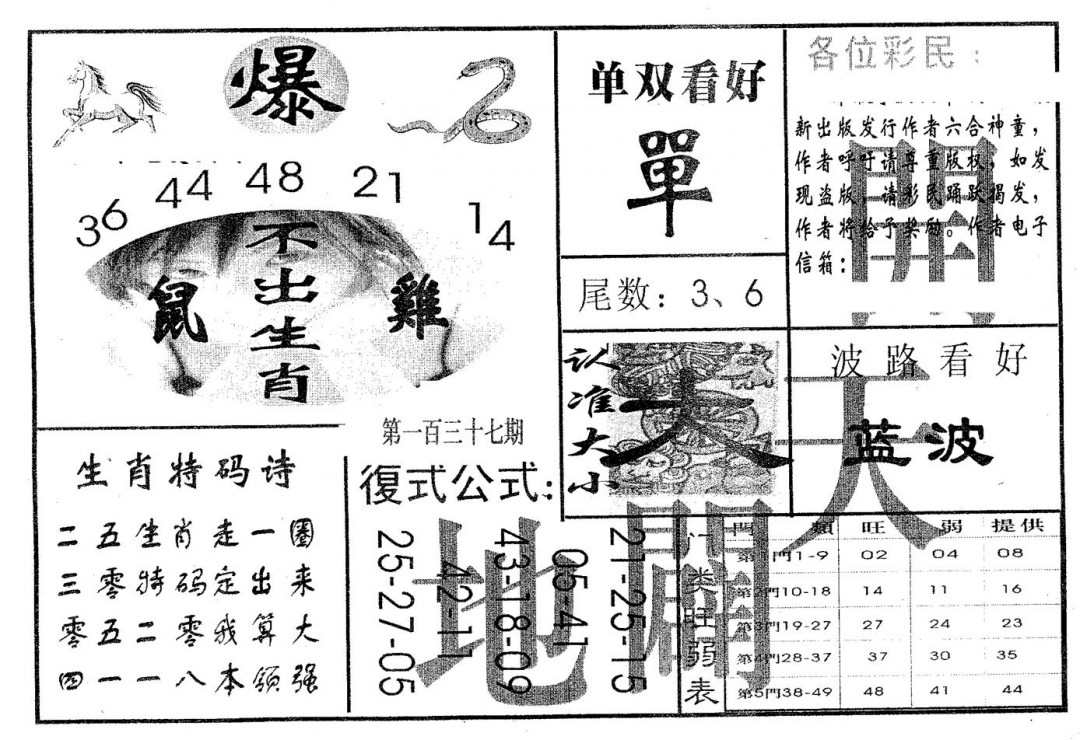 爆
36 44 48 21 14
不出生肖
鼠
雞
单双看好
單
尾数：3、6
各位彩民：
新出版发行作者六合神童，
作者呼吁请尊重版权，如发
现盗版，请彩民踊跃揭发，
作者将给予奖励。作者电子
信箱：
開
认准大小
大
波路看好
蓝波
天
第一百三十七期
生肖特码诗
二五生肖走一圈
三零特码定出来
零五二零我算大
四一一八本领强
復式公式：
21-25-15
05-41
43-18-09
42-11
25-27-05
地
開
门类旺弱表
門類 旺 弱 提供
第1門1-9 02 04 08
第2門10-18 14 11 16
第3門19-27 27 24 23
第4門28-37 37 30 35
第5門38-49 48 41 44